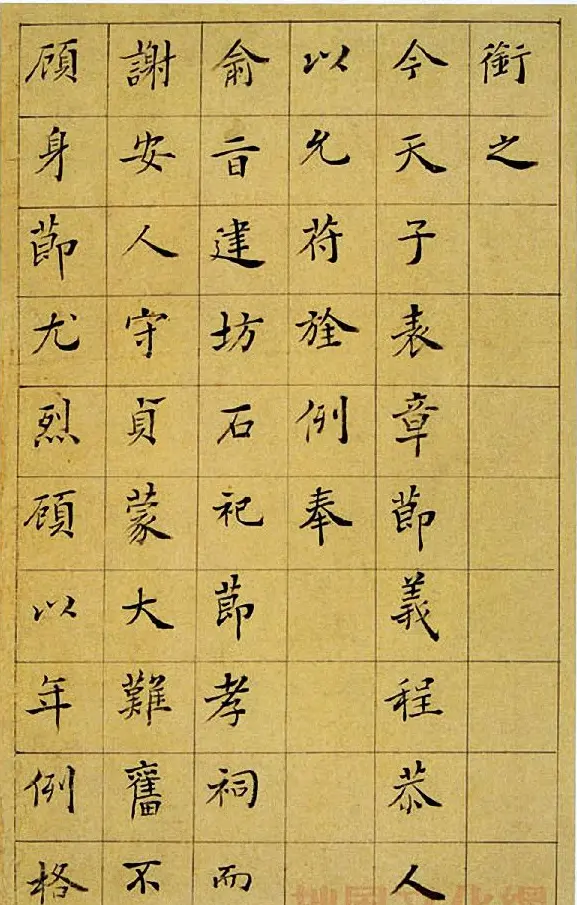 銜之
今天子表章莭義程恭人
以允苻旌例奉
俞㫖建坊石祀莭孝祠而
謝安人守貞蒙大難奮不
顧身莭尤烈顧以年例格